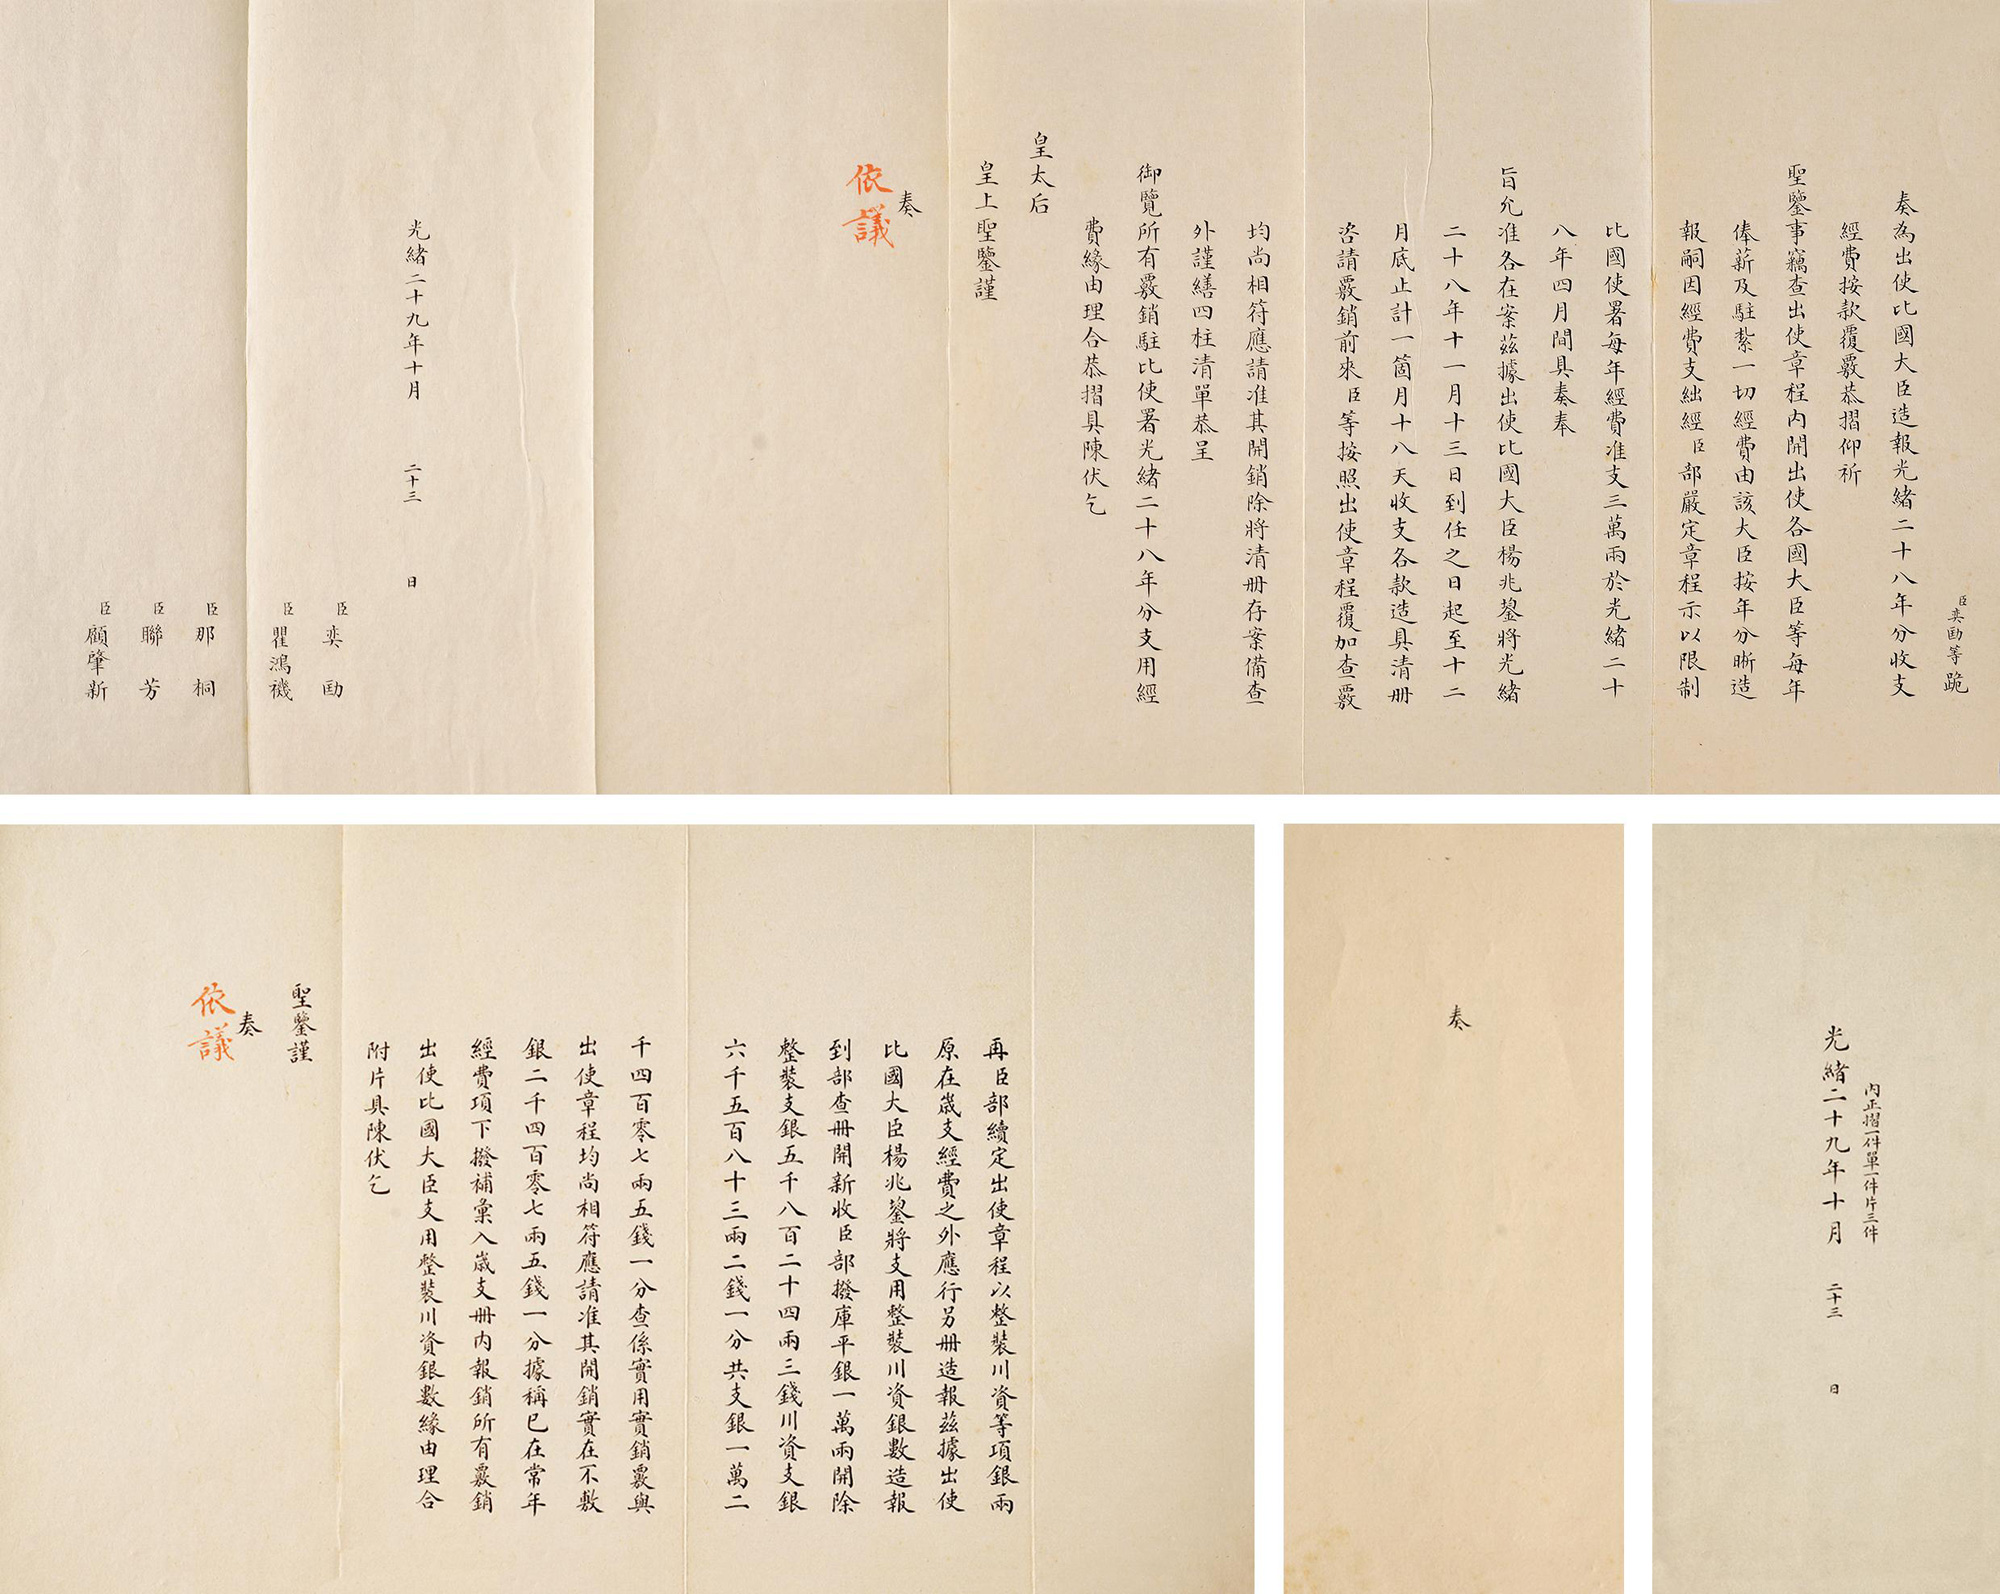 臣奕劻等跪
奏為出使比國大臣造報光緒二十八年分收支
經費按款覆覈恭摺仰祈
聖鑒事竊查出使章程內開出使各國大臣等每年
俸薪及駐紮一切經費由該大臣按年分晰造
報嗣因經費支絀經臣部嚴定章程示以限制
比國使署每年經費准支三萬兩於光緒二十
八年四月間具奏奉
旨允准各在案茲據出使比國大臣楊兆鋆將光緒
二十八年十一月十三日到任之日起至十二
月底止計一箇月十八天收支各款造具清冊
咨請覈銷前來臣等按照出使章程覆加查覈
均尚相符應請准其開銷除將清冊存案備查
外謹繕四柱清單恭呈
御覽所有覈銷駐比使署光緒二十八年分支用經
費緣由理合恭摺具陳伏乞
皇太后
皇上聖鑒謹
奏
依議
光緒二十九年十月 二十三 日
臣奕劻
臣瞿鴻禨
臣那桐
臣聯芳
臣顧肇新
光緒二十九年十月 二十三 日
內正摺一件單一件片三件
奏
再臣部續定出使章程以整裝川資等項銀兩
原在歲支經費之外應行另冊造報茲據出使
比國大臣楊兆鋆將支用整裝川資銀數造報
到部查冊開新收臣部撥庫平銀一萬兩開除
整裝支銀五千八百二十四兩三錢川資支銀
六千五百八十三兩二錢一分共支銀一萬二
千四百零七兩五錢一分查係實用實銷覈與
出使章程均尚相符應請准其開銷實在不敷
銀二千四百零七兩五錢一分據稱已在常年
經費項下撥補彙入歲支冊內報銷所有覈銷
出使比國大臣支用整裝川資銀數緣由理合
附片具陳伏乞
聖鑒謹
奏
依議